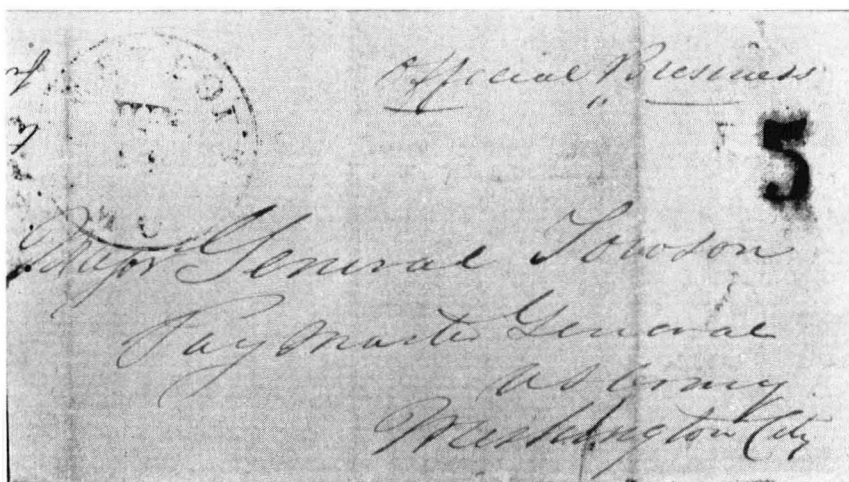 Official Business
5
Major General Towson
Pay Master General
U S Army
Washington City